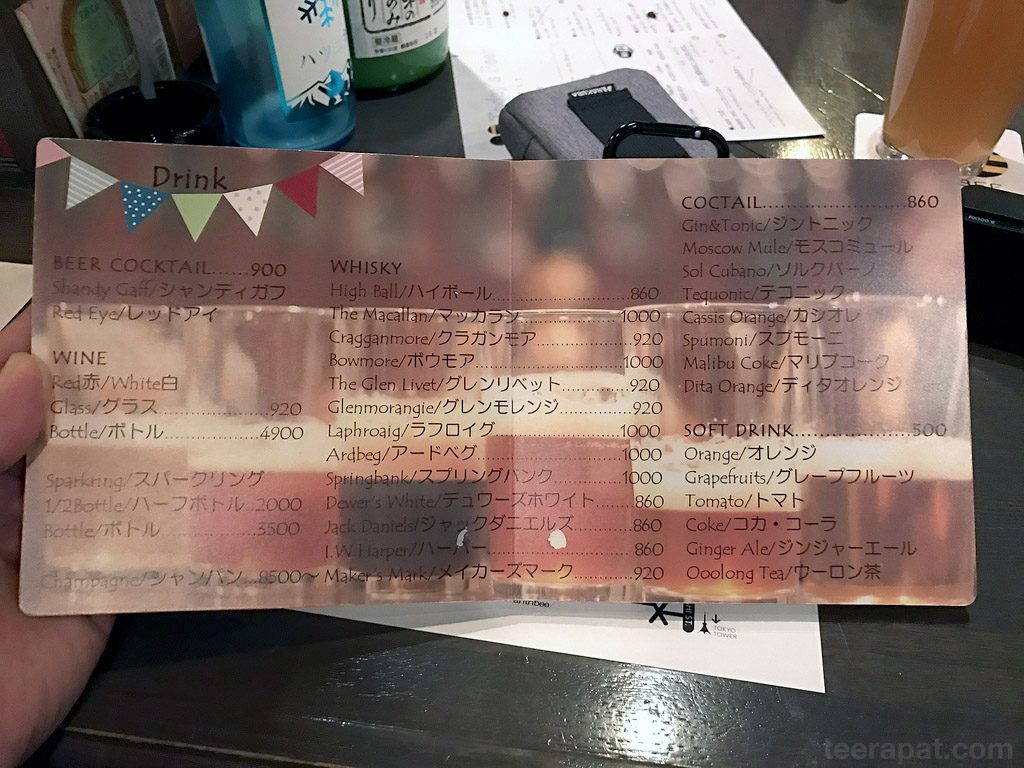 Drink
BEER COCKTAIL......900
Shandy Gaff/シャンディガフ
Red Eye/レッドアイ
WINE
Red赤/White白
Glass/グラス....................920
Bottle/ボトル....................4900
Sparkring/スパークリング
1/2Bottle/ハーフボトル..2000
Bottle/ボトル....................3500
Champagne/シャンパン...8500～
WHISKY
High Ball/ハイボール............................860
The Macallan/マッカラン....................1000
Cragganmore/クラガンモア................920
Bowmore/ボウモア..............................1000
The Glen Livet/グレンリベット............920
Glenmorangie/グレンモレンジ............920
Laphroaig/ラフロイグ..........................1000
Ardbeg/アードベグ..............................1000
Springbank/スプリングバンク............1000
Dewer's White/デュワーズホワイト......860
Jack Daniels/ジャックダニエルズ..........860
I.W Harper/ハーパー............................860
Maker's Mark/メイカーズマーク..........920
COCTAIL..........................860
Gin&Tonic/ジントニック
Moscow Mule/モスコミュール
Sol Cubano/ソルクバーノ
Tequonic/テコニック
Cassis Orange/カシオレ
Spumoni/スプモーニ
Malibu Coke/マリブコーク
Dita Orange/ディタオレンジ
SOFT DRINK....................500
Orange/オレンジ
Grapefruits/グレープフルーツ
Tomato/トマト
Coke/コカ・コーラ
Ginger Ale/ジンジャーエール
Ooolong Tea/ウーロン茶
TOKYO
TOWER
teerapat.com